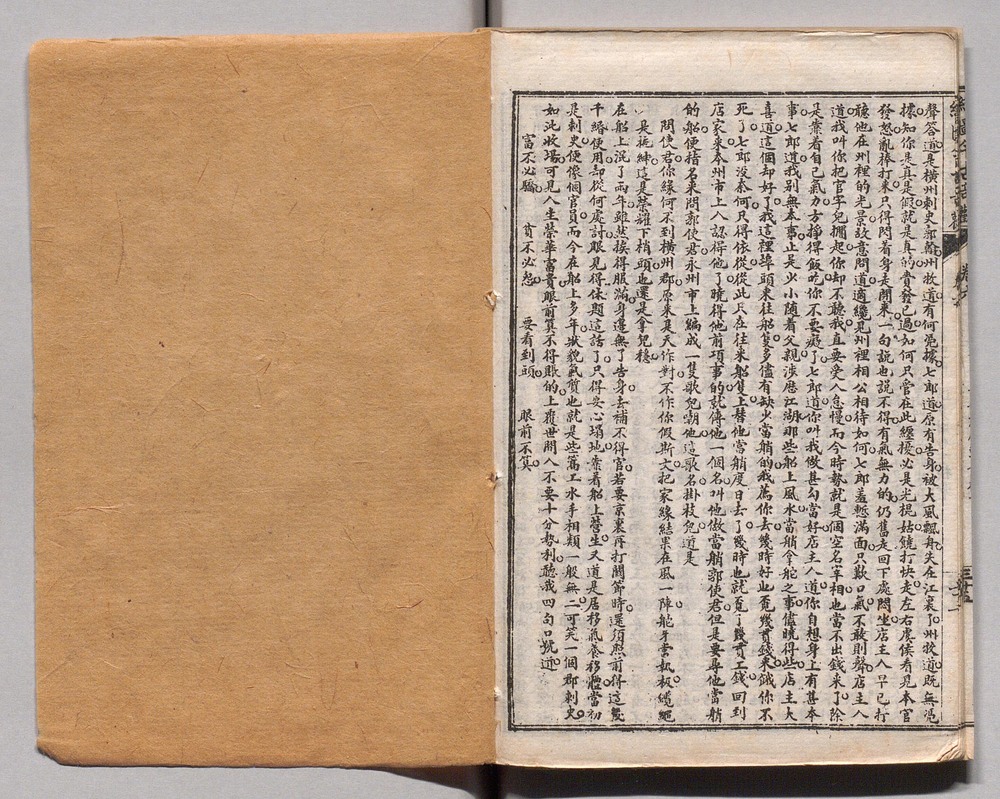 聲答道是橫州刺史郭翰州牧道有何憑據七郎道原有告身被大風飄舟失在江裏了州牧道既無憑
據知你是真是假就是真的賫發已過如何只管在此纏擾必是光棍姑饒打快走左右虞侯看見本官
發怒亂棒打來只得閃着身走開來一句說也說不得有氣無力的仍舊走回下處悶坐店主人早已打
聽他在州裡的光景故意問道適纔見州裡相公相待如何七郎羞慙滿面只歎口氣不敢則聲店主人
道我叫你把官字兒擱起你却不聽我直要受人怠慢而今時勢就是個空名宰相也當不出錢來了除
是靠着自己氣力方掙得飯吃你不要癡了七郎道你叫我做甚勾當好店主人道你自想身上有甚本
事七郎道我别無本事止是少小隨着父親涉歷江湖那些船上風水當艄拿舵之事儘曉得些店主大
喜道這個却好了我這裡埠頭來往船隻多儘有缺少當艄的我薦你去幾時好也覓幾貫錢來餓你不
死了七郎沒奈何只得依從從此只在往來船隻上替他當艄度日去了幾時也就覓了幾貫工錢回到
店家來永州市上人認得他了曉得他前項事的就傳他一個名叫他做當艄郭使君但是要尋他當艄
的船便指名來問郭使君永州市上編成一隻歌兒嘲他這歌名掛枝兒道是
問使君你緣何不到橫州郡原來是天作對不作你假斯文把家緣結果在風一陣舵牙當執板纜繩
是拖紳這是榮耀下梢頭也還是拿兒穩
在船上混了兩年雖然挨得服滿身邊無了告身去補不得官若要京裏再打關節時還須照前得這幾
千緡使用却從何處討眼見得休題這話了只得安心塌地靠着船上營生又道是居移氣養移體當初
是刺史便像個官員而今在船上多年狀貌氣質也就是些篙工水手相類一般無二可笑一個郡刺史
如此收場可見人生榮華富貴眼前算不得賬的上覆世間人不要十分勢利聽我四句口號道
富不必驕 貧不必怨 要看到頭 眼前不算